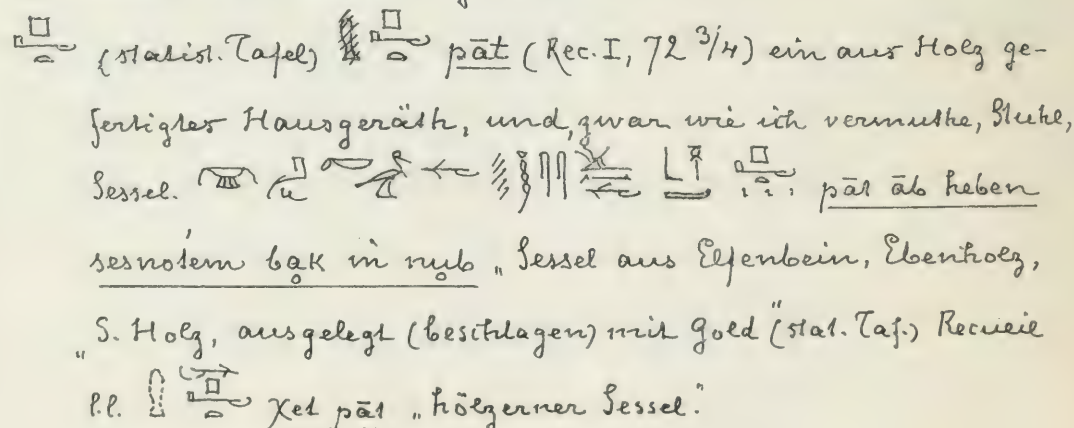 (statist. Tafel) pāt (Rec. I, 72 3/4) ein aus Holz ge-
fertigtes Hausgeräth, und, zwar wie ich vermuthe, Stuhl,
Sessel. pāt āb heben
sesnotem bak in nub „Sessel aus Elfenbein, Ebenholz,
„S. Holz, ausgelegt (beschlagen) mit Gold" (stat. Taf.) Recueil
l.l. χet pāt „hölzerner Sessel."